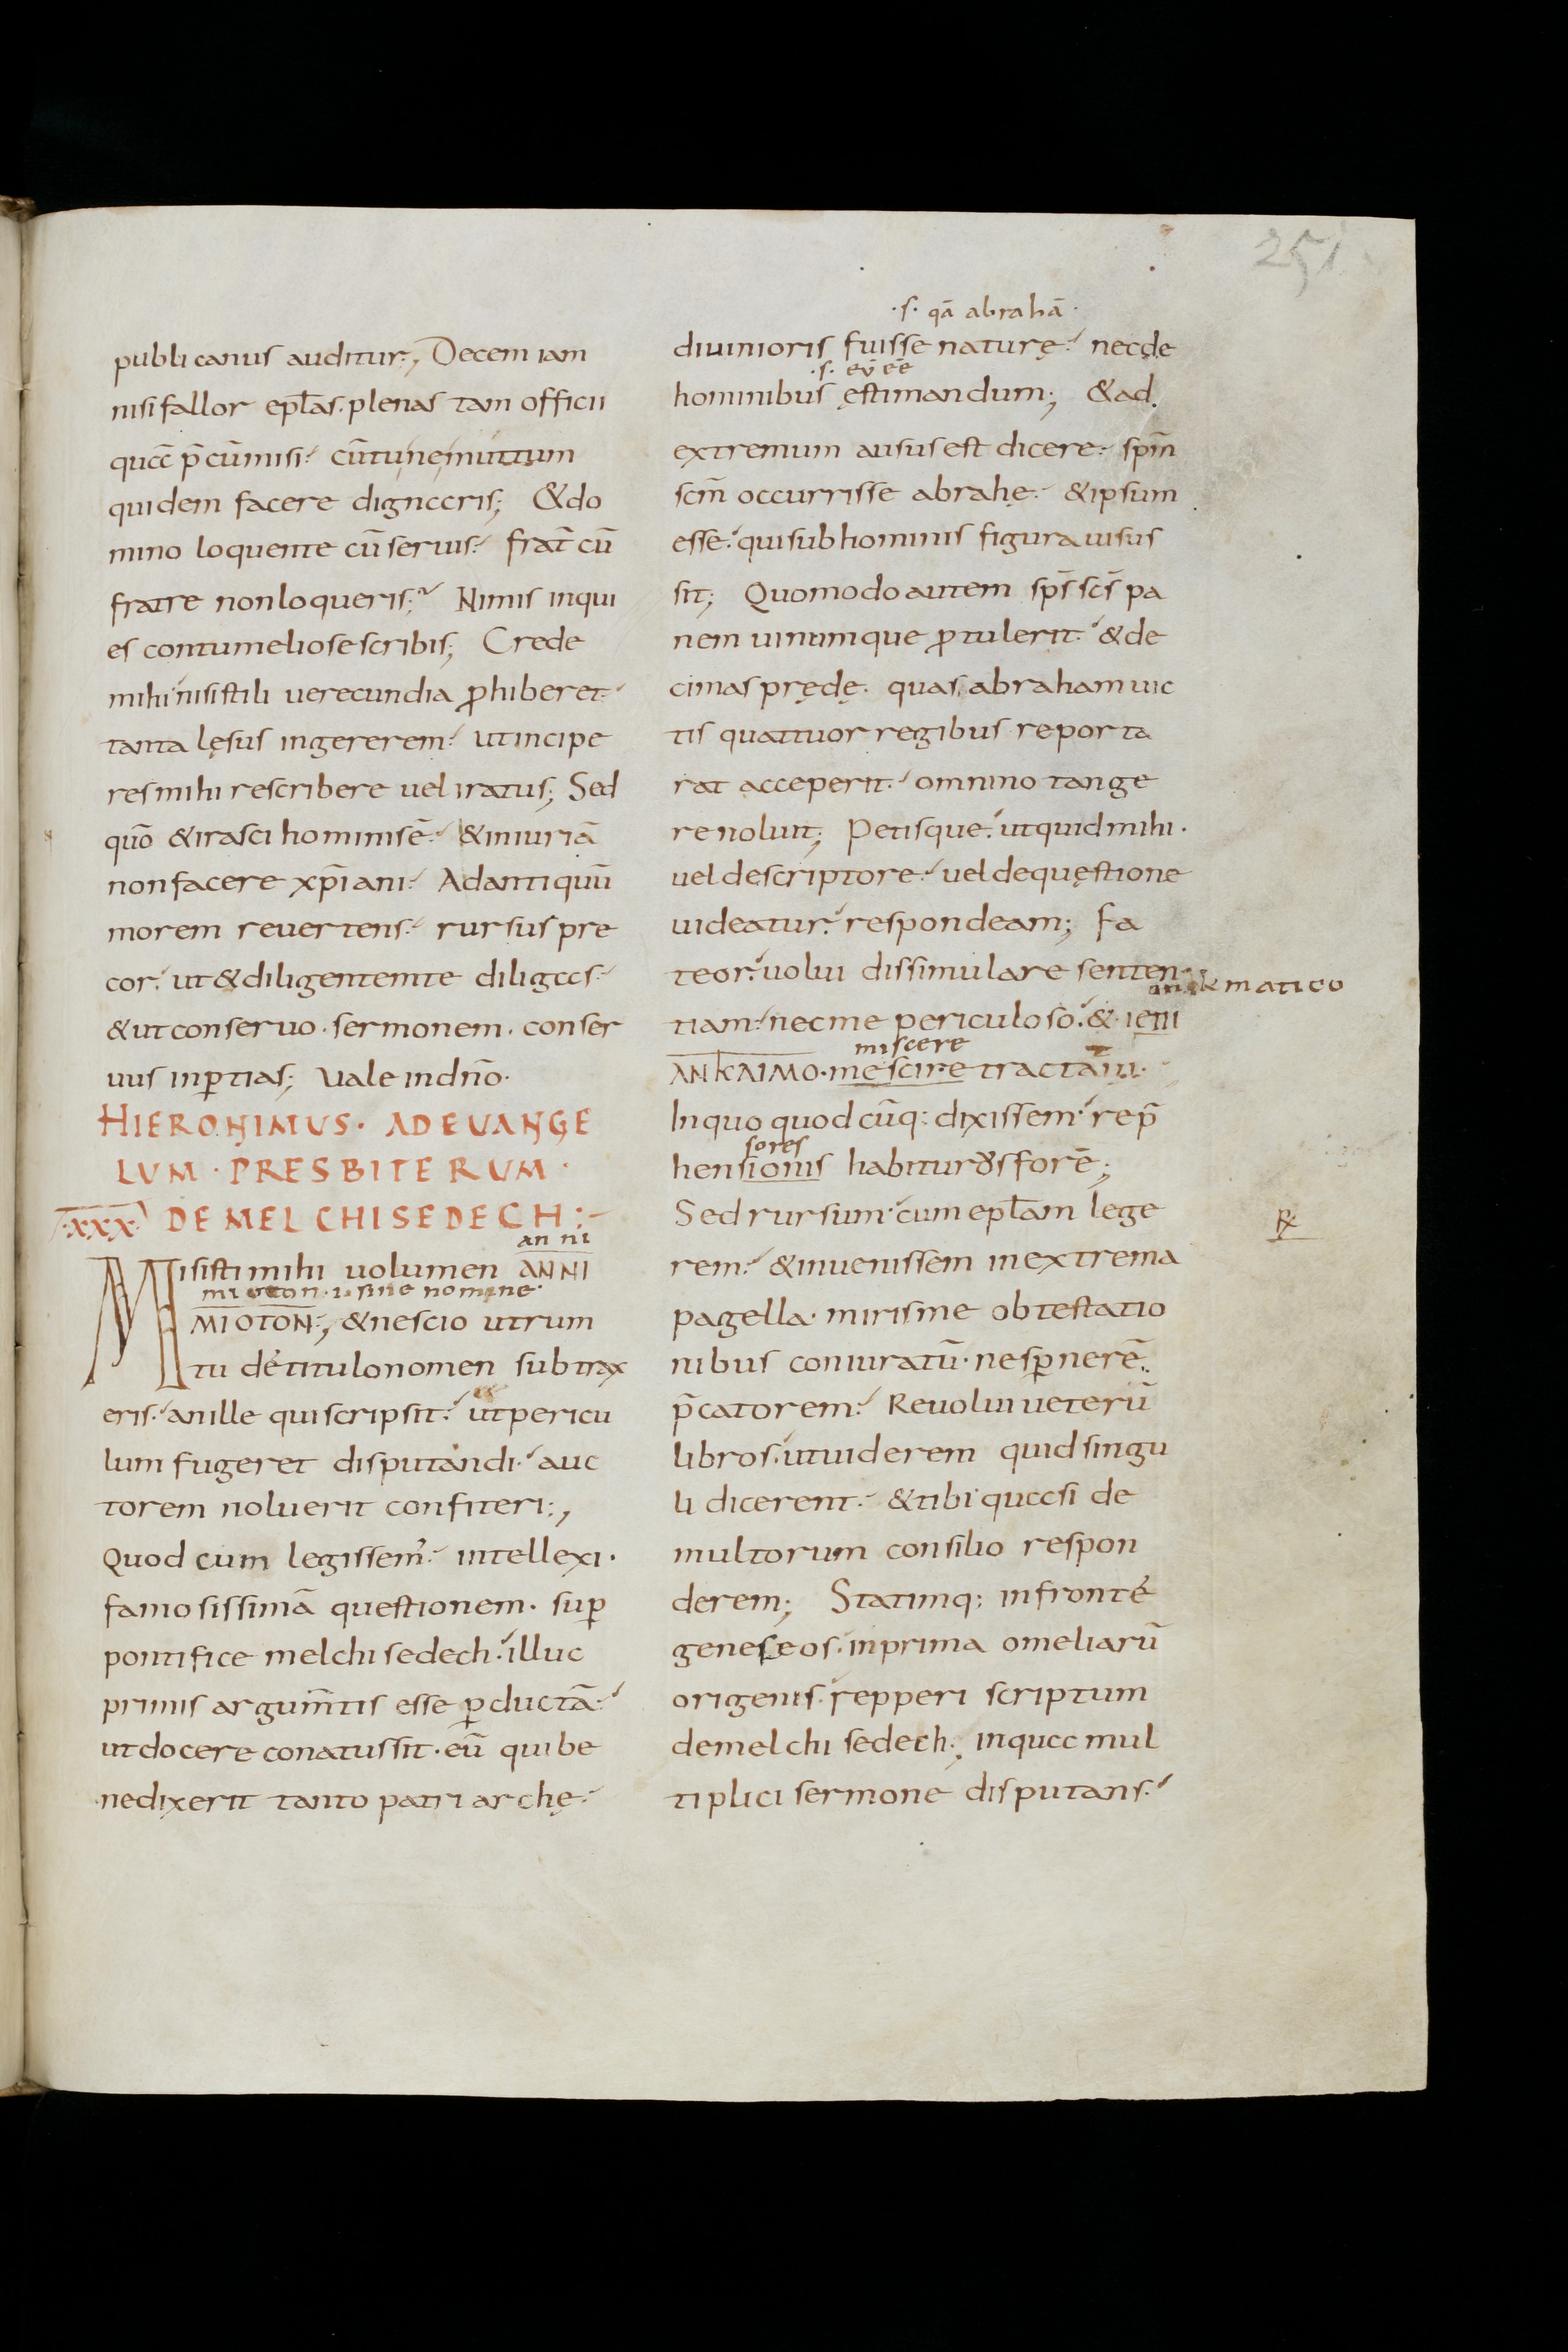 251
publicanus auditur:, Decem iam
nisi fallor epl̄as. plenas tam officii
quā p̄cūmisi: cū tu ne muttum
quidem facere digneris; & do
mino loquente cū seruis: frat̄ cū
fratre non loqueris; Nimis inqui
es contumeliose scribis; Crede
mihi nisi stili uerecundia ꝓhiberet
tanta lęsus ingererem: ut incipe
res mihi rescribere uel iratus; Sed
quō & irasci hominis ē: & iniuriā
non facere xp̄iani: Ad antiquū
morem reuertens: rursus pre
cor: ut & diligentem te diligas:
& ut conseruo. sermonem. conser
uus inꝑtias; Vale in dn̄o.
HIERONIMUS. AD EUANGE
LUM. PRESBITERUM.
.xxx. DE MELCHISEDECH:-
an ni
Misisti mihi uolumen ANNI
sine nomine.
MIOTON:, & nescio utrum
tu de titulo nomen subtrax
eris: an ille qui scripsit: ut pericu
lum fugeret disputandi. auc
torem noluerit confiteri:,
Quod cum legissem: intellexi.
famosissimā questionem. suꝑ
pontifice melchisedech. illuc
primis argum̄tis esse ꝑductā:
ut docere conatus sit. eū qui be
nedixerit tanto patriarchę:
.s. qā abrahā.
diuinioris fuisse naturę: nec de
.s. eū eē
hominibus ęstimandum; & ad
extremum ausus est dicere: spm̄
scm̄ occurrisse abrahę: & ipsum
esse: qui sub hominis figura uisus
sit; Quomodo autem sps̄ scs̄ pa
nem uinumque ꝓtulerit: & de
cimas prędę. quas abraham uic
tis quattuor regibus reporta
rat acceperit: omnino tange
re noluit; Petisque: ut quid mihi.
uel de scriptore: uel de quęstione
uideatur: respondeam; Fa
teor: uolui dissimulare senten
matico
tiam: nec me periculoso: &
miscere
ANKAIMO. mescire tractaui.
In quo quodcūq: dixissem: rep̄
sores
hensionis habiturus forē;
Sed rursum: cum epl̄am lege
rem: & inuenissem in extrema
pagella. miris me obtestatio
nibus coniuratū. ne sꝑnerē
p̄catorem: Reuolui ueterū
libros. ut uiderem quid singu
li dicerent: & tibi quasi de
multorum consilio respon
derem; Statimq: in fronte
geneseos. in prima omeliarū
origenis. repperi scriptum
de melchisedech:, in qua mul
tiplici sermone disputans: